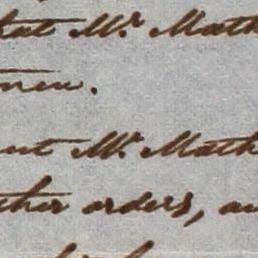 that Mr. Math
men.
ent Mr. Math
ther orders, an